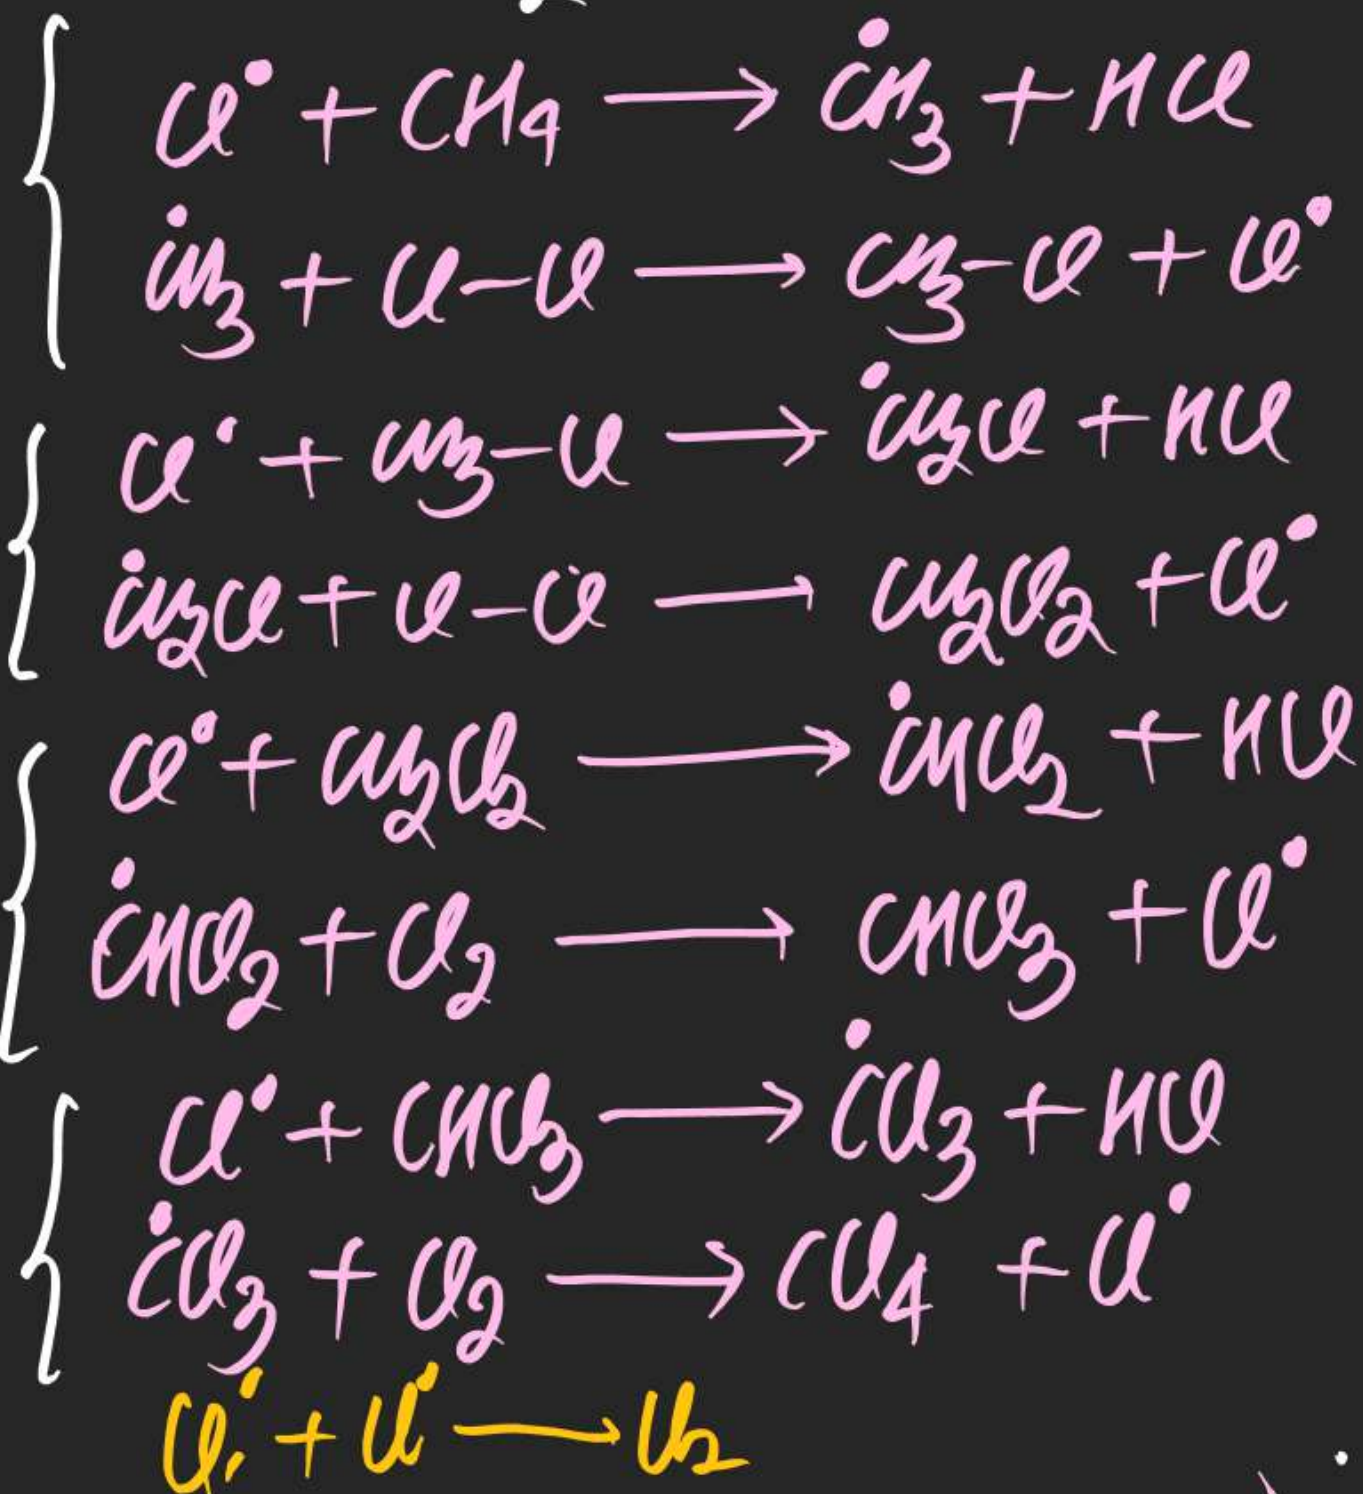 Cl• + CH4 → ĊH3 + HCl
ĊH3 + Cl–Cl → CH3–Cl + Cl•
Cl• + CH3–Cl → ĊH2Cl + HCl
ĊH2Cl + Cl–Cl → CH2Cl2 + Cl•
Cl• + CH2Cl2 → ĊHCl2 + HCl
ĊHCl2 + Cl2 → CHCl3 + Cl•
Cl• + CHCl3 → ĊCl3 + HCl
ĊCl3 + Cl2 → CCl4 + Cl•
Cl• + Cl• → Cl2